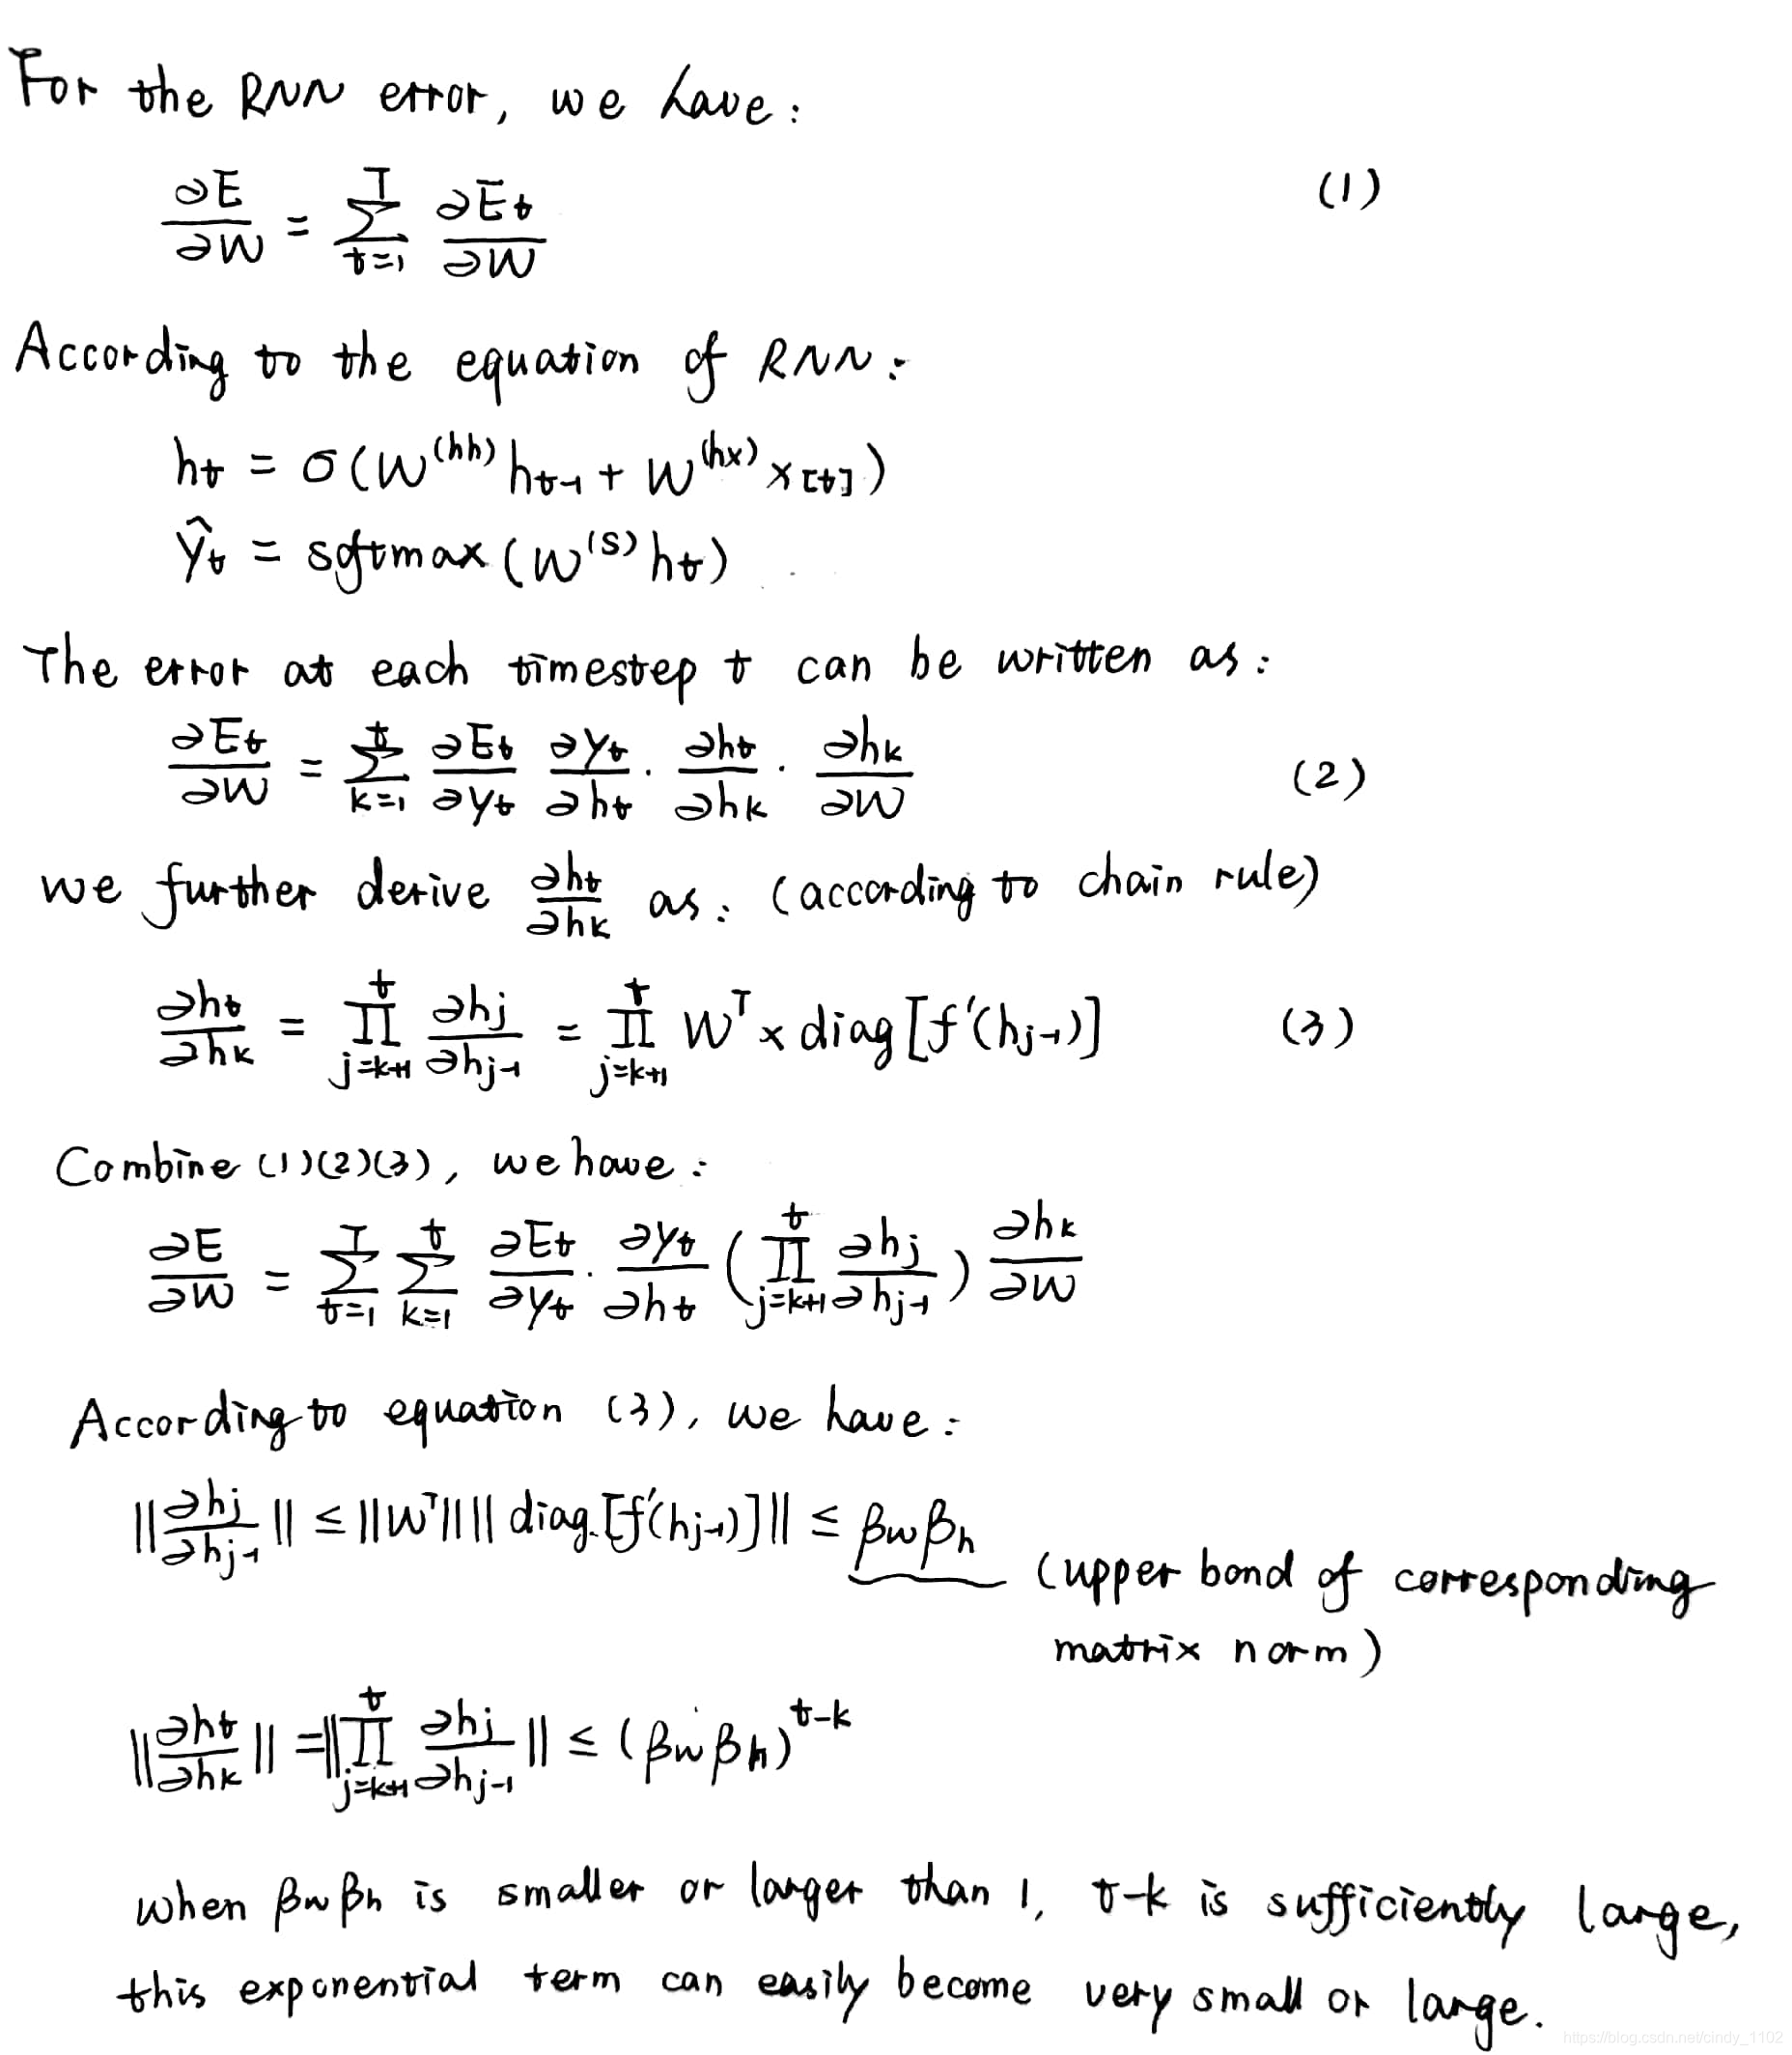 For the RNN error, we have:
∂E/∂W = Σ_{t=1}^{T} ∂E_t/∂W (1)
According to the equation of RNN:
h_t = σ(W^(hh) h_{t-1} + W^(hx) x_[t])
ŷ_t = softmax(W^(S) h_t)
The error at each timestep t can be written as:
∂E_t/∂W = Σ_{k=1}^{t} ∂E_t/∂y_t ∂y_t/∂h_t · ∂h_t/∂h_k · ∂h_k/∂W (2)
we further derive ∂h_t/∂h_k as: (according to chain rule)
∂h_t/∂h_k = Π_{j=k+1}^{t} ∂h_j/∂h_{j-1} = Π_{j=k+1}^{t} W^T × diag[f'(h_{j-1})] (3)
Combine (1)(2)(3), we have:
∂E/∂W = Σ_{t=1}^{T} Σ_{k=1}^{t} ∂E_t/∂y_t · ∂y_t/∂h_t (Π_{j=k+1}^{t} ∂h_j/∂h_{j-1}) ∂h_k/∂W
According to equation (3), we have:
||∂h_j/∂h_{j-1}|| ≤ ||W^T|| || diag[f'(h_{j-1})]|| ≤ β_w β_h (upper bond of corresponding
matrix norm)
||∂h_t/∂h_k|| = ||Π_{j=k+1}^{t} ∂h_j/∂h_{j-1}|| ≤ (β_w β_h)^{t-k}
when β_w β_h is smaller or larger than 1, t-k is sufficiently large,
this exponential term can easily become very small or large.
https://blog.csdn.net/cindy_1102